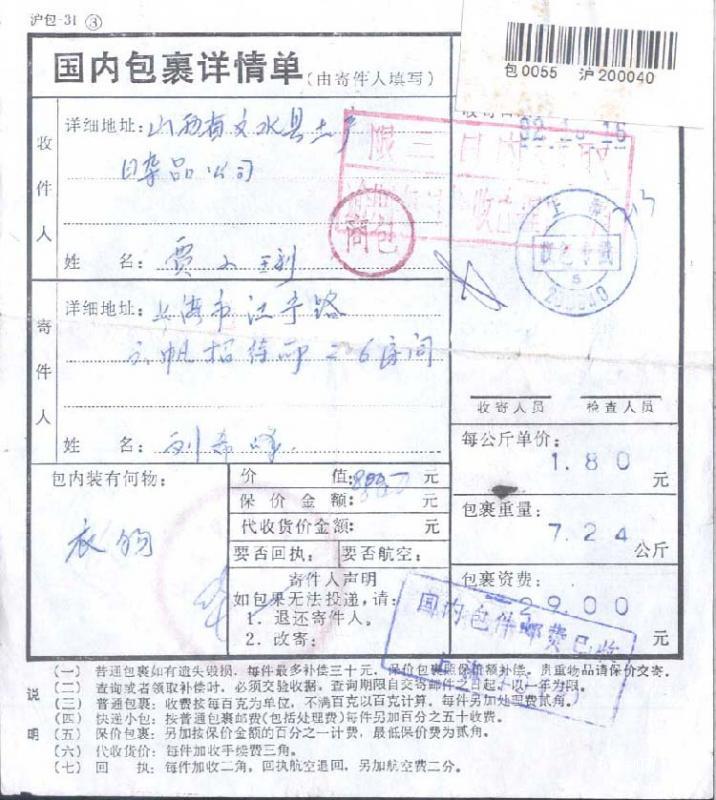 沪包-31 ③
包0055 沪200040
国内包裹详情单(由寄件人填写)
收件人
详细地址:山西省文水县土产
日杂品公司
姓 名:贾
92.10.16
限三日内
商包
上海
收包专戳
5
200040
寄件人
详细地址:上海市江宁路
招待所26房间
姓 名:刘
收寄人员 检查人员
每公斤单价:
1.80 元
包裹重量:
7.24 公斤
包裹资费:
29.00 元
包内装有何物:
衣物
价 值: 元
保价金额: 元
代收货价金额: 元
要否回执: 要否航空:
寄件人声明
如包果无法投递,请:
1.退还寄件人。
2.改寄:
国内包件邮费已收
说明
(一) 普通包裹如有遗失毁损,每件最多补偿三十元,保价包裹照保价额补偿。贵重物品请保价交寄。
(二) 查询或者领取补偿时,必须交验收据,查询期限自交寄邮件之日起,以一年为限。
(三) 普通包裹:收费按每百克为单位,不满百克以百克计算,每件另加处理费贰角。
(四) 快递小包:按普通包裹邮费(包括处理费)每件另加百分之五十收费。
(五) 保价包裹:另加按保价金额的百分之一计费,最低保价费为贰角。
(六) 代收货价:每件加收手续费三角。
(七) 回 执:每件加收二角,回执航空退回,另加航空费二分。